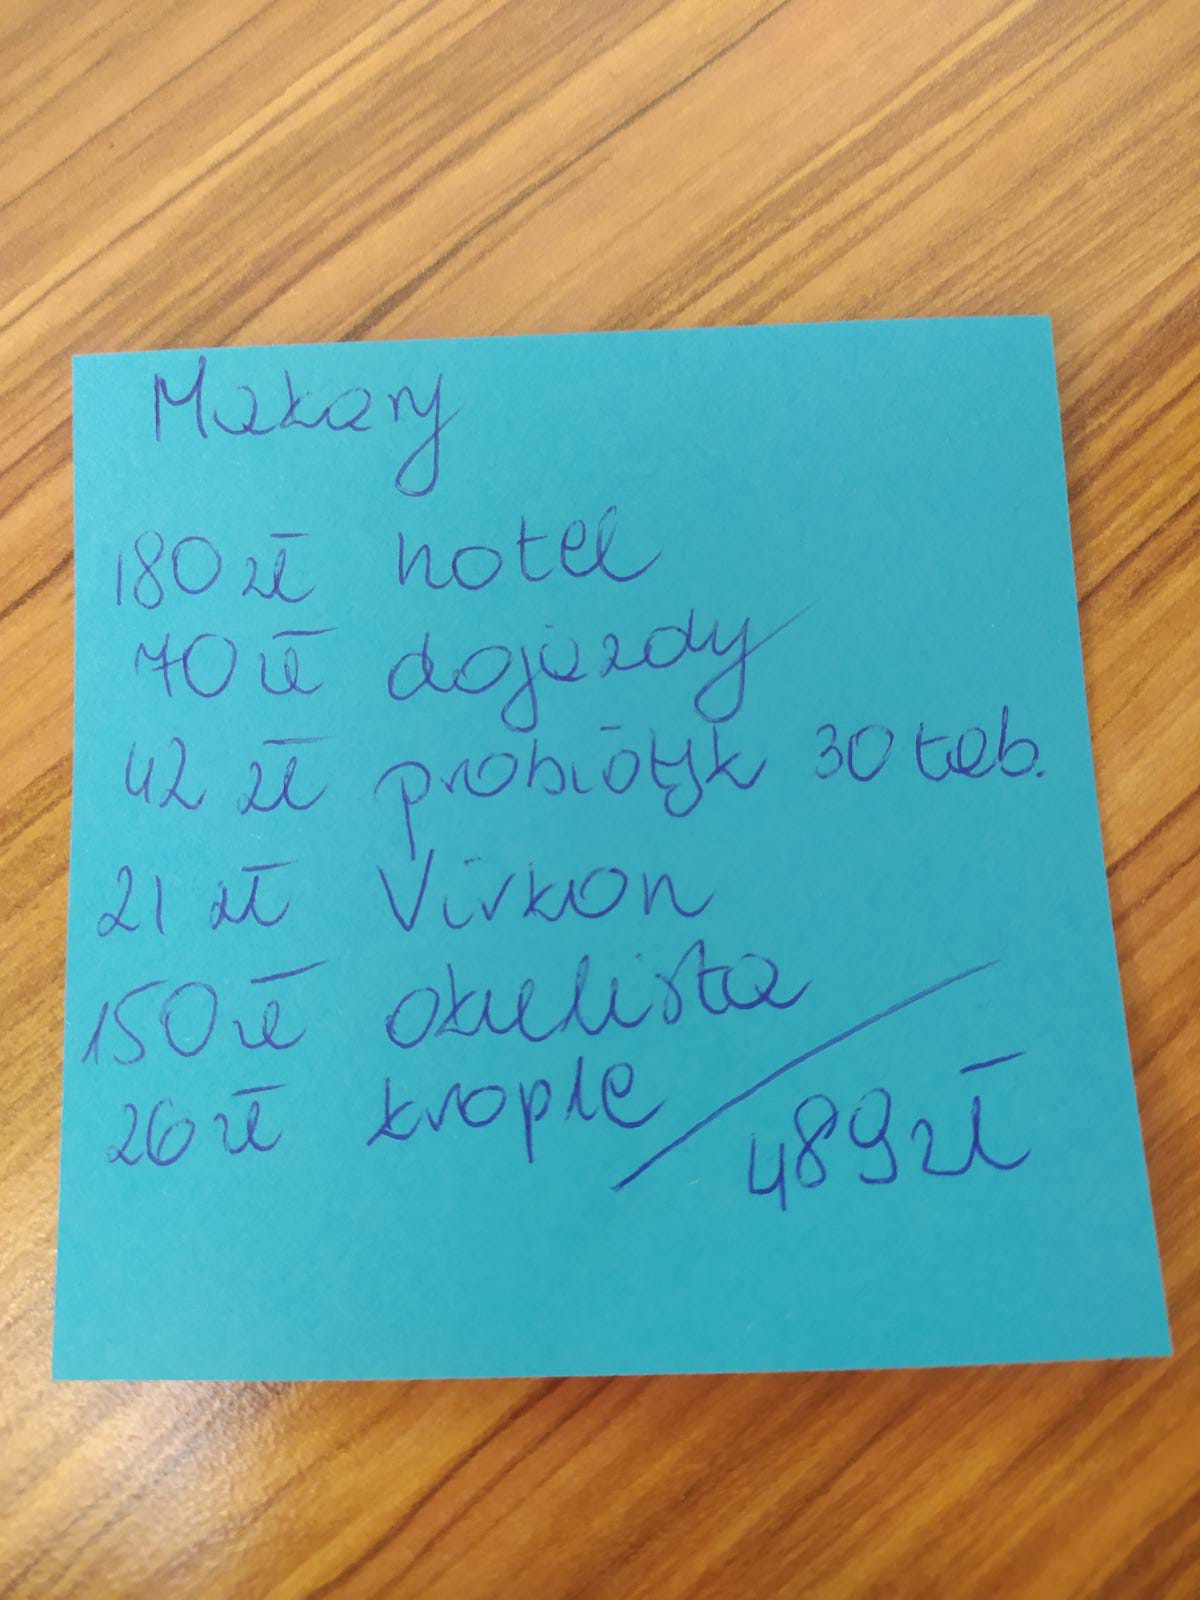 Makary
180 zł hotel
70 zł dojazdy
42 zł probiotyk 30 tab.
21 zł Virkon
150 zł okulista
26 zł krople
489 zł